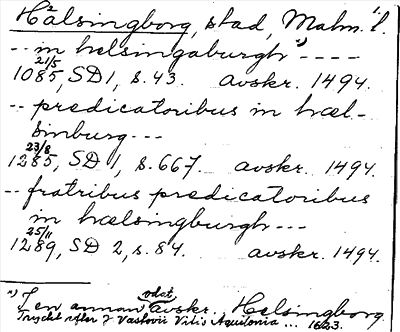 Hälsingborg, stad, Malm. l.
-- in helsingaburgh ¹) ----
1085 21/5, SD 1, s. 43. avskr. 1494.
-- predicatoribus in hæl-
sinburg ---
1285 23/8, SD 1, s. 667. avskr. 1494.
-- fratribus predicatoribus
in hælsingburgh ---
1289 25/11, SD 2, s. 84. avskr. 1494.
¹) I en annan odat. avskr. Helsingborg.
Tryckt efter J Vastovii Vitis Aquilonia ... 1623.